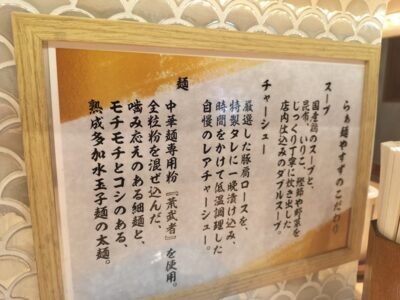 らぁ麺やすずのこだわり
スープ
国産鶏のスープと、
昆布、いりこ、鰹節や野菜を
じっくり丁寧に炊き出した
店内仕込みのダブルスープ。
チャーシュー
厳選した豚肩ロースを、
特製タレに一晩漬け込み、
時間をかけて低温調理した
自慢のレアチャーシュー。
麺
中華麺専用粉『荒武者』を使用。
全粒粉を混ぜ込んだ、
噛み応えのある細麺と、
モチモチとコシのある、
熟成多加水玉子麺の太麺。